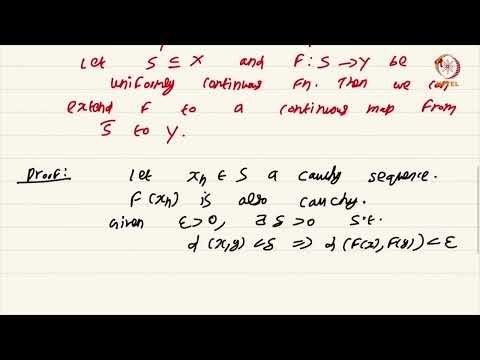 Let S ⊆ X and F : S → Y be
uniformly continuous fn. Then we can
extend F to a continuous map from
S̅ to Y.
Proof: Let xn ∈ S a cauchy sequence.
F(xn) is also cauchy.
Given ε > 0, ∃ δ > 0 s.t.
d(x,y) < δ => d(F(x), F(y)) < ε